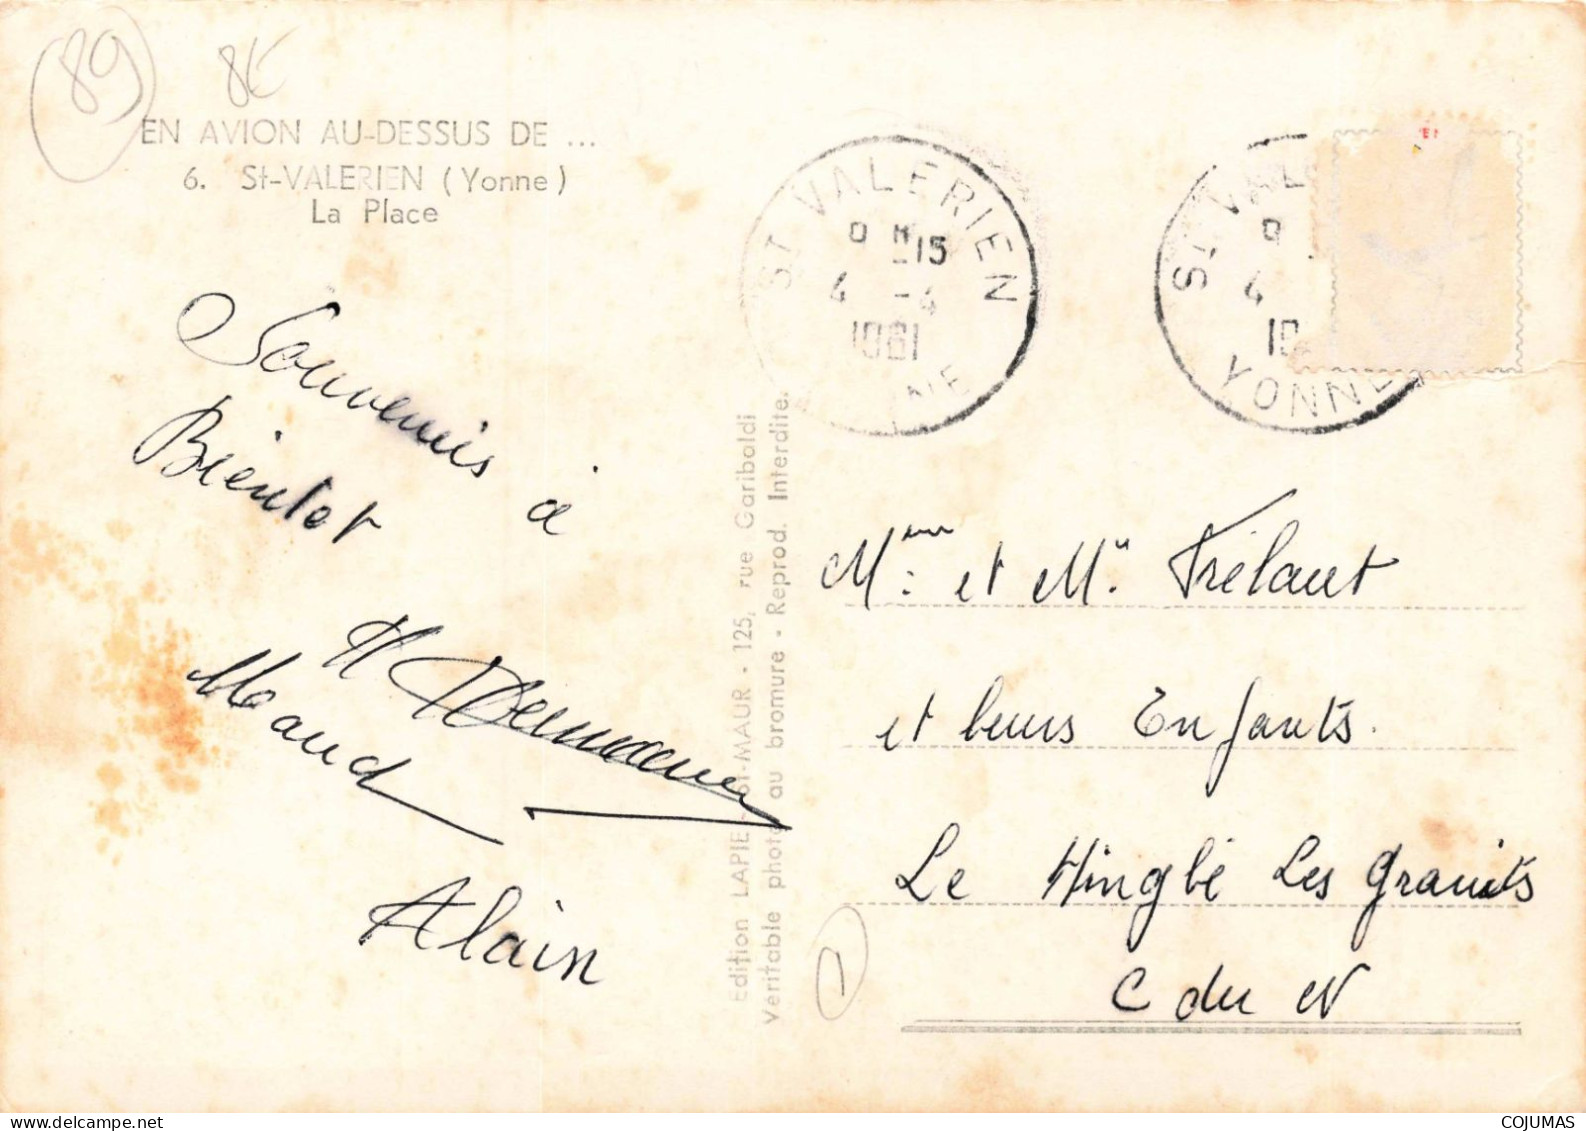 89
8€
EN AVION AU-DESSUS DE ...
6. St-VALERIEN (Yonne)
La Place
Souvenis à
Bientot
Maud
Alain
Edition LAPIE - St-MAUR - 125, rue Gariboldi
Véritable photo au bromure - Reprod. Interdite.
ST VALERIEN
9 H 15
4 -4
1961
YONNE
ST VAL
9
4
19
YONNE
Mme et Mr Frélaut
et leurs Enfants.
Le Hinglé Les Granits
C du N
1
COJUMAS